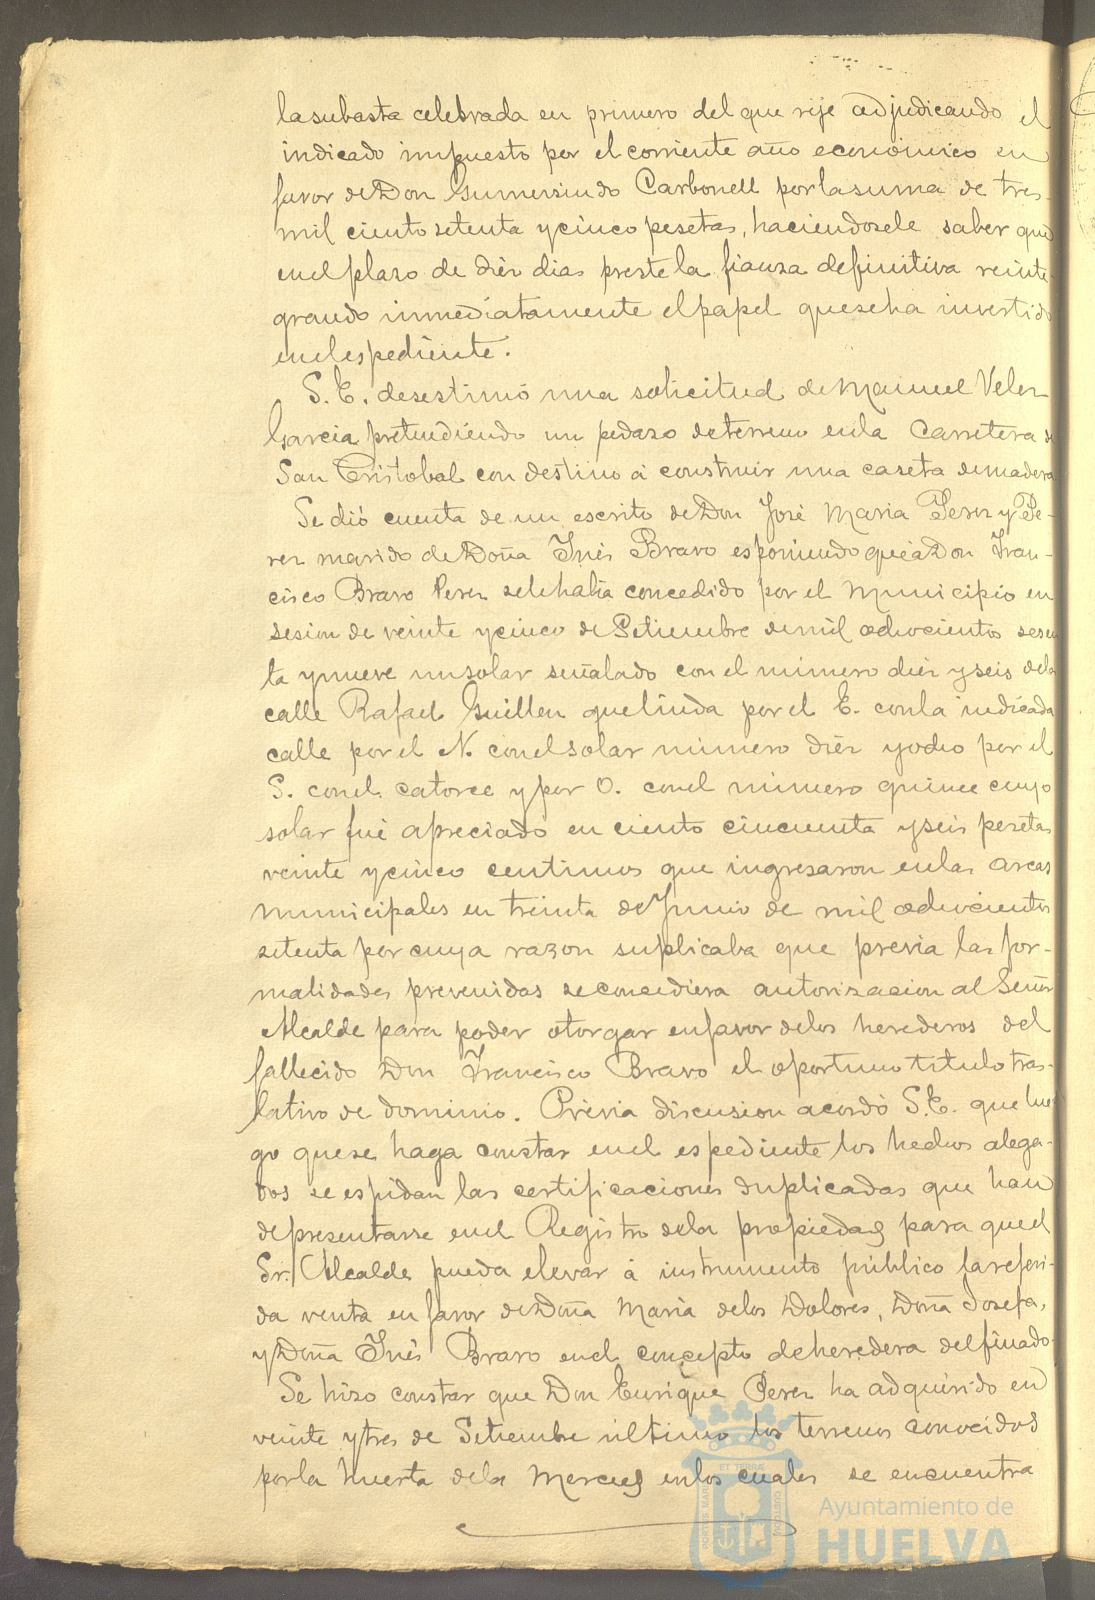 la subasta celebrada en primero del que rije adjudicando el
indicado impuesto por el corriente año economico en
favor de Don Gumersindo Carbonell por la suma de tres
mil ciento setenta y cinco pesetas, haciendosele saber que
en el plazo de diez dias preste la fianza definitiva reinte-
grando inmediatamente el papel que se ha invertido
en el espediente.
S. E. desestimó una solicitud de Manuel Velez
Garcia pretendiendo un pedazo de terreno en la Carretera de
San Cristobal con destino á construir una caseta de madera
Se dió cuenta de un escrito de Don José Maria Perez y Pe-
rez marido de Doña Inés Bravo esponiendo que á Don Fran-
cisco Bravo Perez se le habia concedido por el Municipio en
sesion de veinte y cinco de Setiembre de mil ochocientos sesen
ta y nueve un solar señalado con el número diez y seis de la
calle Rafael Guillen que linda por el E. con la indicada
calle por el N. con el solar número diez y ocho por el
S. con el catorce y por O. con el número quince cuyo
solar fué apreciado en ciento cincuenta y seis pesetas
veinte y cinco centimos que ingresaron en las arcas
municipales en treinta de Junio de mil ochocientos
setenta por cuya razon suplicaba que previa las for-
malidades prevenidas se concediera autorizacion al Señor
Alcalde para poder otorgar en favor de los herederos del
fallecido Don Francisco Bravo el oportuno titulo tras-
lativo de dominio. Prévia discusion acordó S. E. que lue
go que se haga constar en el espediente los hechos alega-
dos se espidan las certificaciones duplicadas que han
de presentarse en el Registro de la propiedad para que el
Sr. Alcalde pueda elevar á instrumento público la referi-
da venta en favor de Doña Maria de los Dolores, Doña Josefa,
y Doña Inés Bravo en el concepto de heredera del finado.
Se hizo constar que Don Enrique Perez ha adquirido en
veinte y tres de Setiembre último los terrenos conocidos
por la huerta de la Merced en los cuales se encuentra
Ayuntamiento de
HUELVA